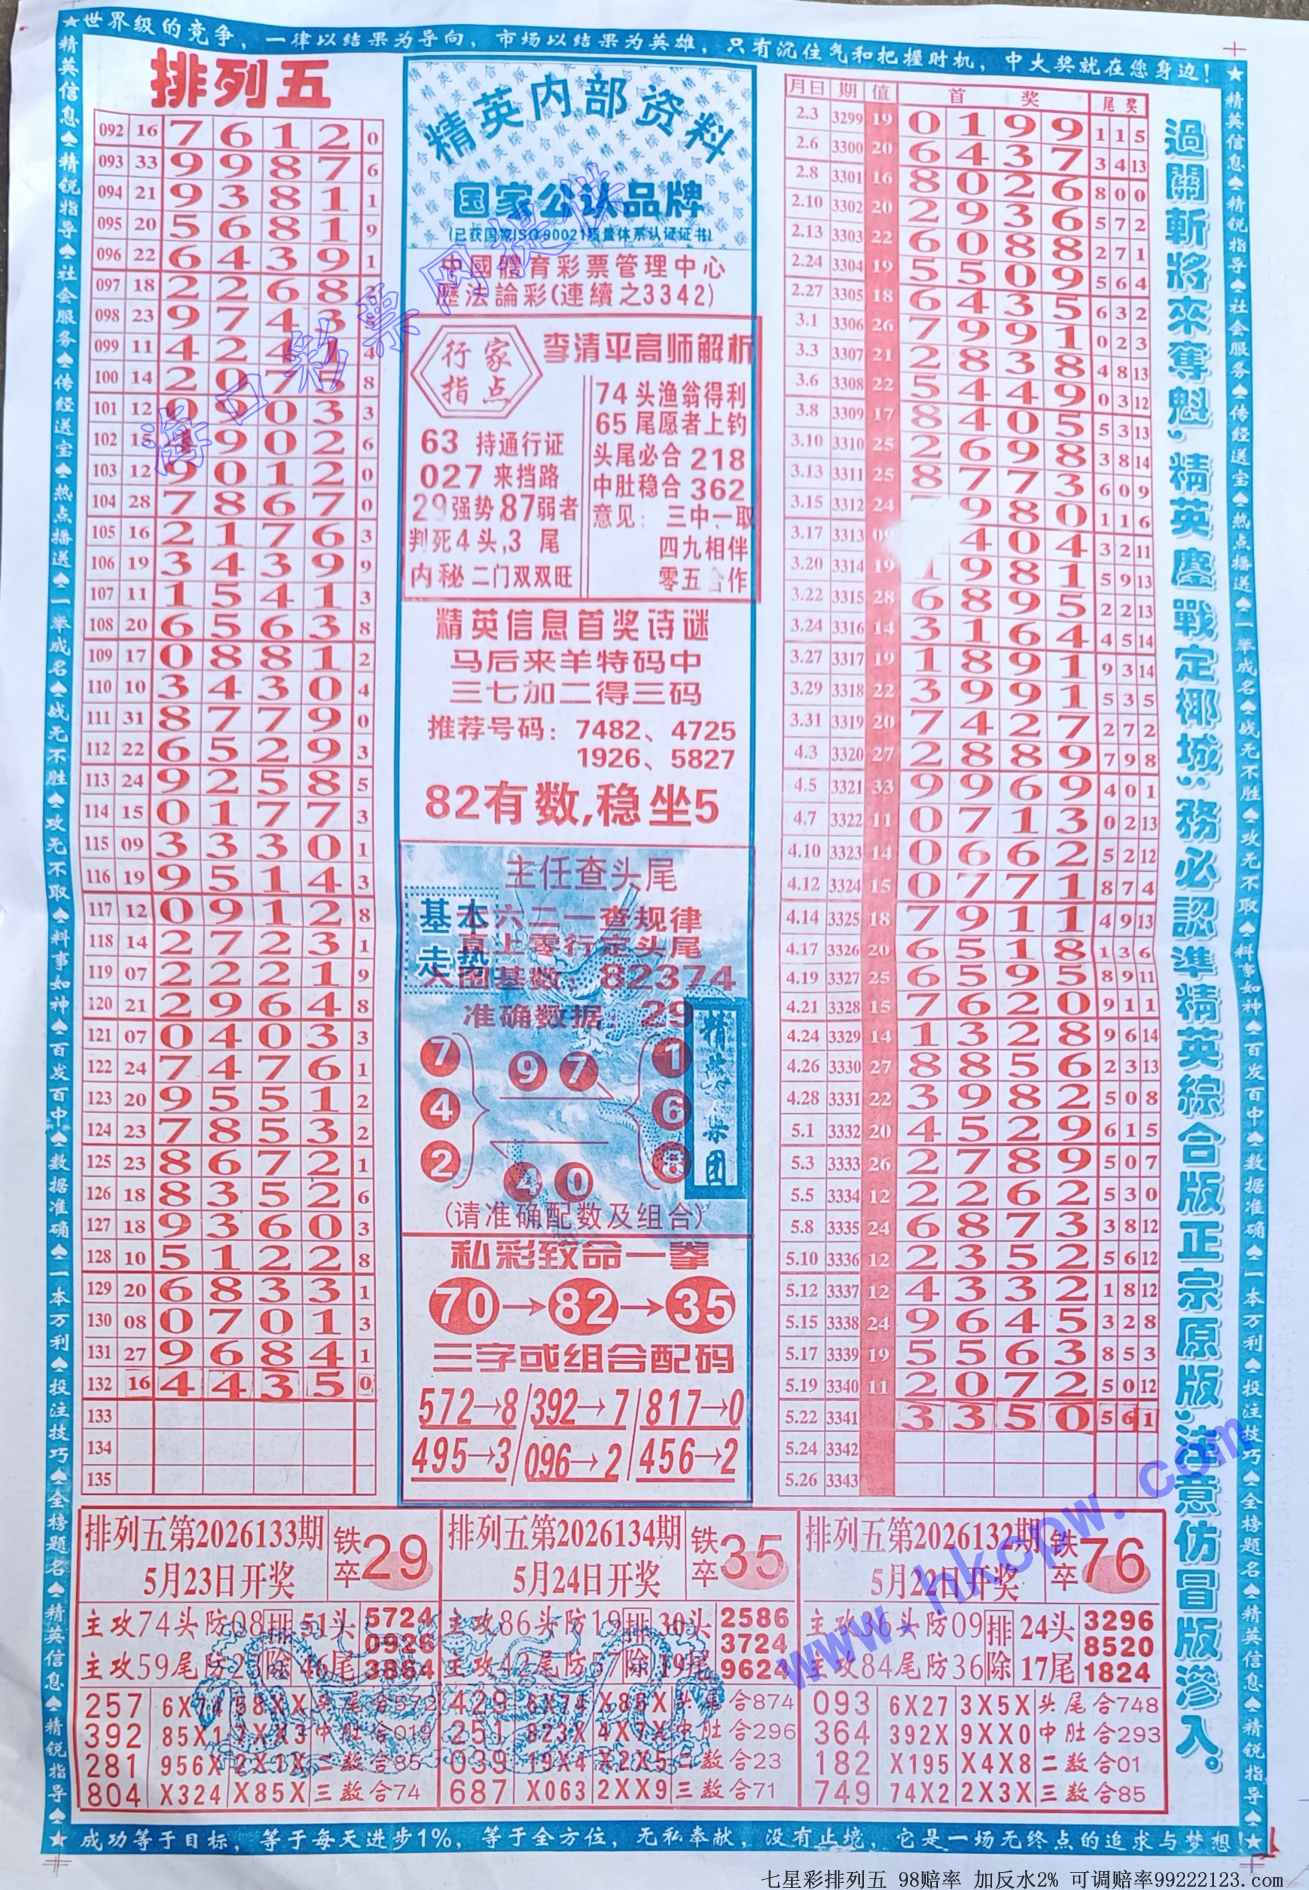 ★世界级的竞争，一律以结果为导向，市场以结果为英雄，只有沉住气和把握时机，中大奖就在您身边！★
精英信息♠精锐指导♠社会服务♠传经送宝♠热点播送♠一举成名♠战无不胜♠攻无不取♠料事如神♠百发百中♠数据准确♠一本万利♠投注技巧♠金榜题名♠精英信息♠精锐指导♠
排列五
092 16 7 6 1 2 0
093 33 9 9 8 7 6
094 21 9 3 8 1 1
095 20 5 6 8 1 9
096 22 6 4 3 9 1
097 18 2 2 6 8
098 23 9 7 4 3
099 11 4 2 4 1 4
100 14 2 0 7 5 8
101 12 0 9 0 3 3
102 15 1 9 0 2 6
103 12 9 0 1 2 0
104 28 7 8 6 7 0
105 16 2 1 7 6 3
106 19 3 4 3 9 9
107 11 1 5 4 1 3
108 20 6 5 6 3 8
109 17 0 8 8 1 2
110 10 3 4 3 0 4
111 31 8 7 7 9 0
112 22 6 5 2 9 3
113 24 9 2 5 8 5
114 15 0 1 7 7 3
115 09 3 3 3 0 1
116 19 9 5 1 4 3
117 12 0 9 1 2 8
118 14 2 7 2 3 1
119 07 2 2 2 1 9
120 21 2 9 6 4 8
121 07 0 4 0 3 3
122 24 7 4 7 6 1
123 20 9 5 5 1 2
124 23 7 8 5 3 2
125 23 8 6 7 2 1
126 18 8 3 5 2 6
127 18 9 3 6 0 3
128 10 5 1 2 2 8
129 20 6 8 3 3 1
130 08 0 7 0 1 3
131 27 9 6 8 4 1
132 16 4 4 3 5 0
133
134
135
精英内部资料
国家公认品牌
(已获国家ISO90021质量体系认证证书)
中國體育彩票管理中心
歷法論彩(連續之3342)
行家指点
李清平高师解析
63 持通行证
027 来挡路
29强势,87弱者
判死4头,3 尾
内秘二门双双旺
74 头渔翁得利
65 尾愿者上钓
头尾必合 218
中肚稳合 362
意见：三中一取
四九相伴
零五合作
精英信息首奖诗谜
马后来羊特码中
三七加二得三码
推荐号码：7482、4725
1926、5827
82有数,稳坐5
主任查头尾
基本走势
六二一查规律
直上零行定头尾
入围基数：82374
准确数据：29
7 4 2
9 7
4 0
1 6 8
(请准确配数及组合)
私彩致命一拳
70→82→35
三字或组合配码
572→8/392→7/817→0
495→3/096→2/456→2
月日 期 值 首奖 尾奖
2.3 3299 19 0 1 9 9 1 1 5
2.6 3300 20 6 4 3 7 3 4 13
2.8 3301 16 8 0 2 6 8 0 0
2.10 3302 20 2 9 3 6 5 7 2
2.13 3303 22 6 0 8 8 2 7 1
2.24 3304 19 5 5 0 9 5 6 4
2.27 3305 18 6 4 3 5 6 3 2
3.1 3306 26 7 9 9 1 0 2 3
3.3 3307 21 2 8 3 8 4 8 13
3.6 3308 22 5 4 4 9 0 3 12
3.8 3309 17 8 4 0 5 5 3 13
3.10 3310 25 2 6 9 8 3 8 14
3.13 3311 25 8 7 7 3 6 0 9
3.15 3312 24 7 9 8 0 1 1 6
3.17 3313 09 4 0 4 3 2 11
3.20 3314 19 1 9 8 1 5 9 13
3.22 3315 28 6 8 9 5 2 2 13
3.24 3316 14 3 1 6 4 4 5 14
3.27 3317 19 1 8 9 1 9 3 14
3.29 3318 22 3 9 9 1 5 3 5
3.31 3319 20 7 4 2 7 2 7 2
4.3 3320 27 2 8 8 9 7 9 8
4.5 3321 33 9 9 6 9 4 0 1
4.7 3322 11 0 7 1 3 0 2 13
4.10 3323 14 0 6 6 2 5 2 12
4.12 3324 15 0 7 7 1 8 7 4
4.14 3325 18 7 9 1 1 4 9 13
4.17 3326 20 6 5 1 8 1 3 6
4.19 3327 25 6 5 9 5 8 9 11
4.21 3328 15 7 6 2 0 9 1 1
4.24 3329 14 1 3 2 8 9 6 14
4.26 3330 27 8 8 5 6 2 3 13
4.28 3331 22 3 9 8 2 5 0 8
5.1 3332 20 4 5 2 9 6 1 5
5.3 3333 26 2 7 8 9 5 0 7
5.5 3334 12 2 2 6 2 5 3 0
5.8 3335 24 6 8 7 3 3 8 12
5.10 3336 12 2 3 5 2 5 6 12
5.12 3337 12 4 3 3 2 1 8 12
5.15 3338 24 9 6 4 5 3 2 8
5.17 3339 19 5 5 6 3 8 5 3
5.19 3340 11 2 0 7 2 5 0 12
5.22 3341 3 3 5 0 5 6 1
5.24 3342
5.26 3343
過關斬將來奪魁，精英鏖戰定椰城；務必認準精英綜合版正宗原版，注意仿冒版滲入。
精英信息♠精锐指导♠社会服务♠传经送宝♠热点播送♠一举成名♠战无不胜♠攻无不取♠料事如神♠百发百中♠数据准确♠一本万利♠投注技巧♠金榜题名♠精英信息♠精锐指导♠
海口彩票网提供
www.hkcpw.com
精英 集团
排列五第2026133期
5月23日开奖
铁卒29
主攻74头防08 排除 51头
主攻59尾防23 46尾
5724
0926
3864
257 6X74 58XX 头尾合572
392 85X1 中肚合019
281 956X 2X1X 二数合85
804 X324 X85X 三数合74
排列五第2026134期
5月24日开奖
铁卒35
主攻86头防19 排除 30头
主攻42尾防57 19尾
2586
3724
9624
429 6X74 X88X 头尾合874
251 823X 4X7X 中肚合296
039 19X4 X2X5 二数合23
687 X063 2XX9 三数合71
排列五第2026132期
5月22日开奖
铁卒76
主攻36头防09 排除 24头
主攻84尾防36 17尾
3296
8520
1824
093 6X27 3X5X 头尾合748
364 392X 9XX0 中肚合293
182 X195 X4X8 二数合01
749 74X2 2X3X 三数合85
★成功等于目标，等于每天进步1%，等于全方位，无私奉献，没有止境，它是一场无终点的追求与梦想！★
七星彩排列五 98赔率 加反水2% 可调赔率99222123.com